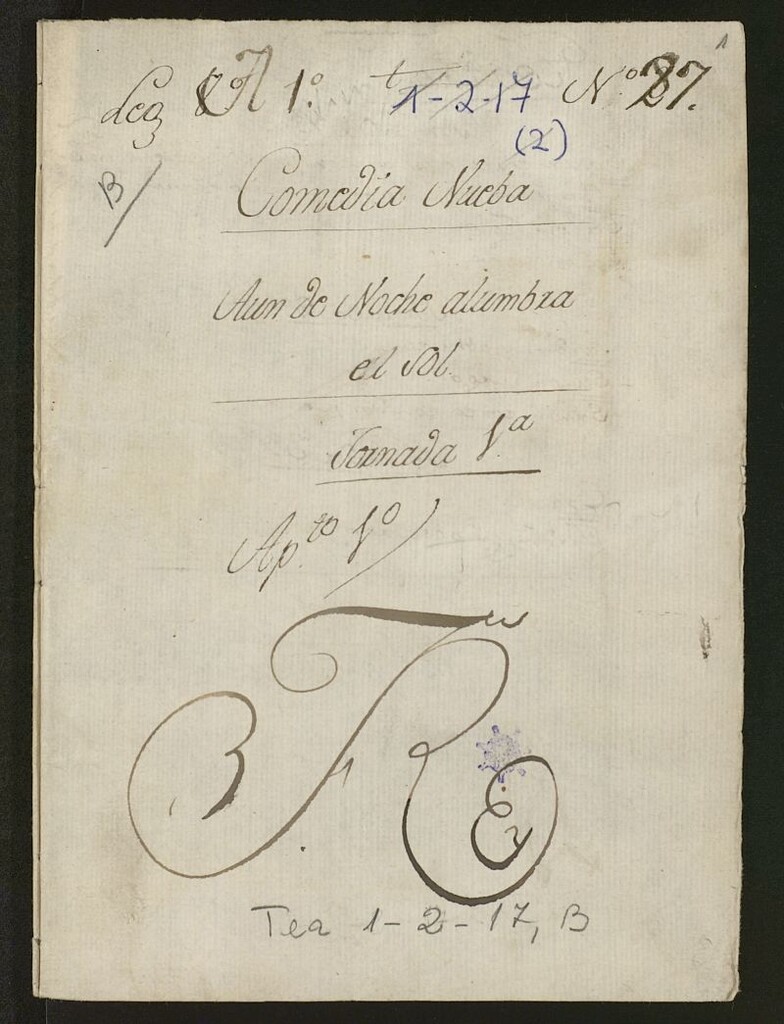 1
Leg A 1.º 1-2-17 N.º 27.
(2)
B/
Comedia Nueba
Aun de Noche alumbra
el Sol
Jornada 1ª
Ap.to 1º
Tea 1-2-17, B